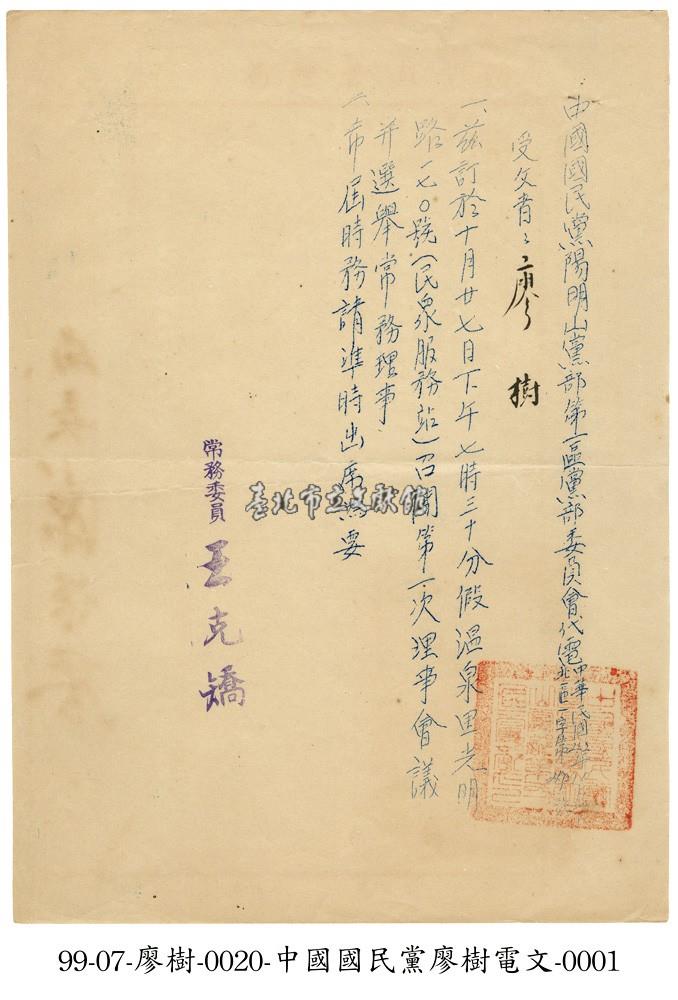 中國國民黨陽明山黨部第一區黨部委員會代電
中華民國
北區一字第 號
受文者：廖樹
一、茲訂於十月廿七日下午七時三十分假溫泉里光明
路一七〇號（民眾服務站）召開第一次理事會議
并選舉常務理事
二、希屆時務請準時出席為要
常務委員 王克矯
臺北市立文獻館
99-07-廖樹-0020-中國國民黨廖樹電文-0001